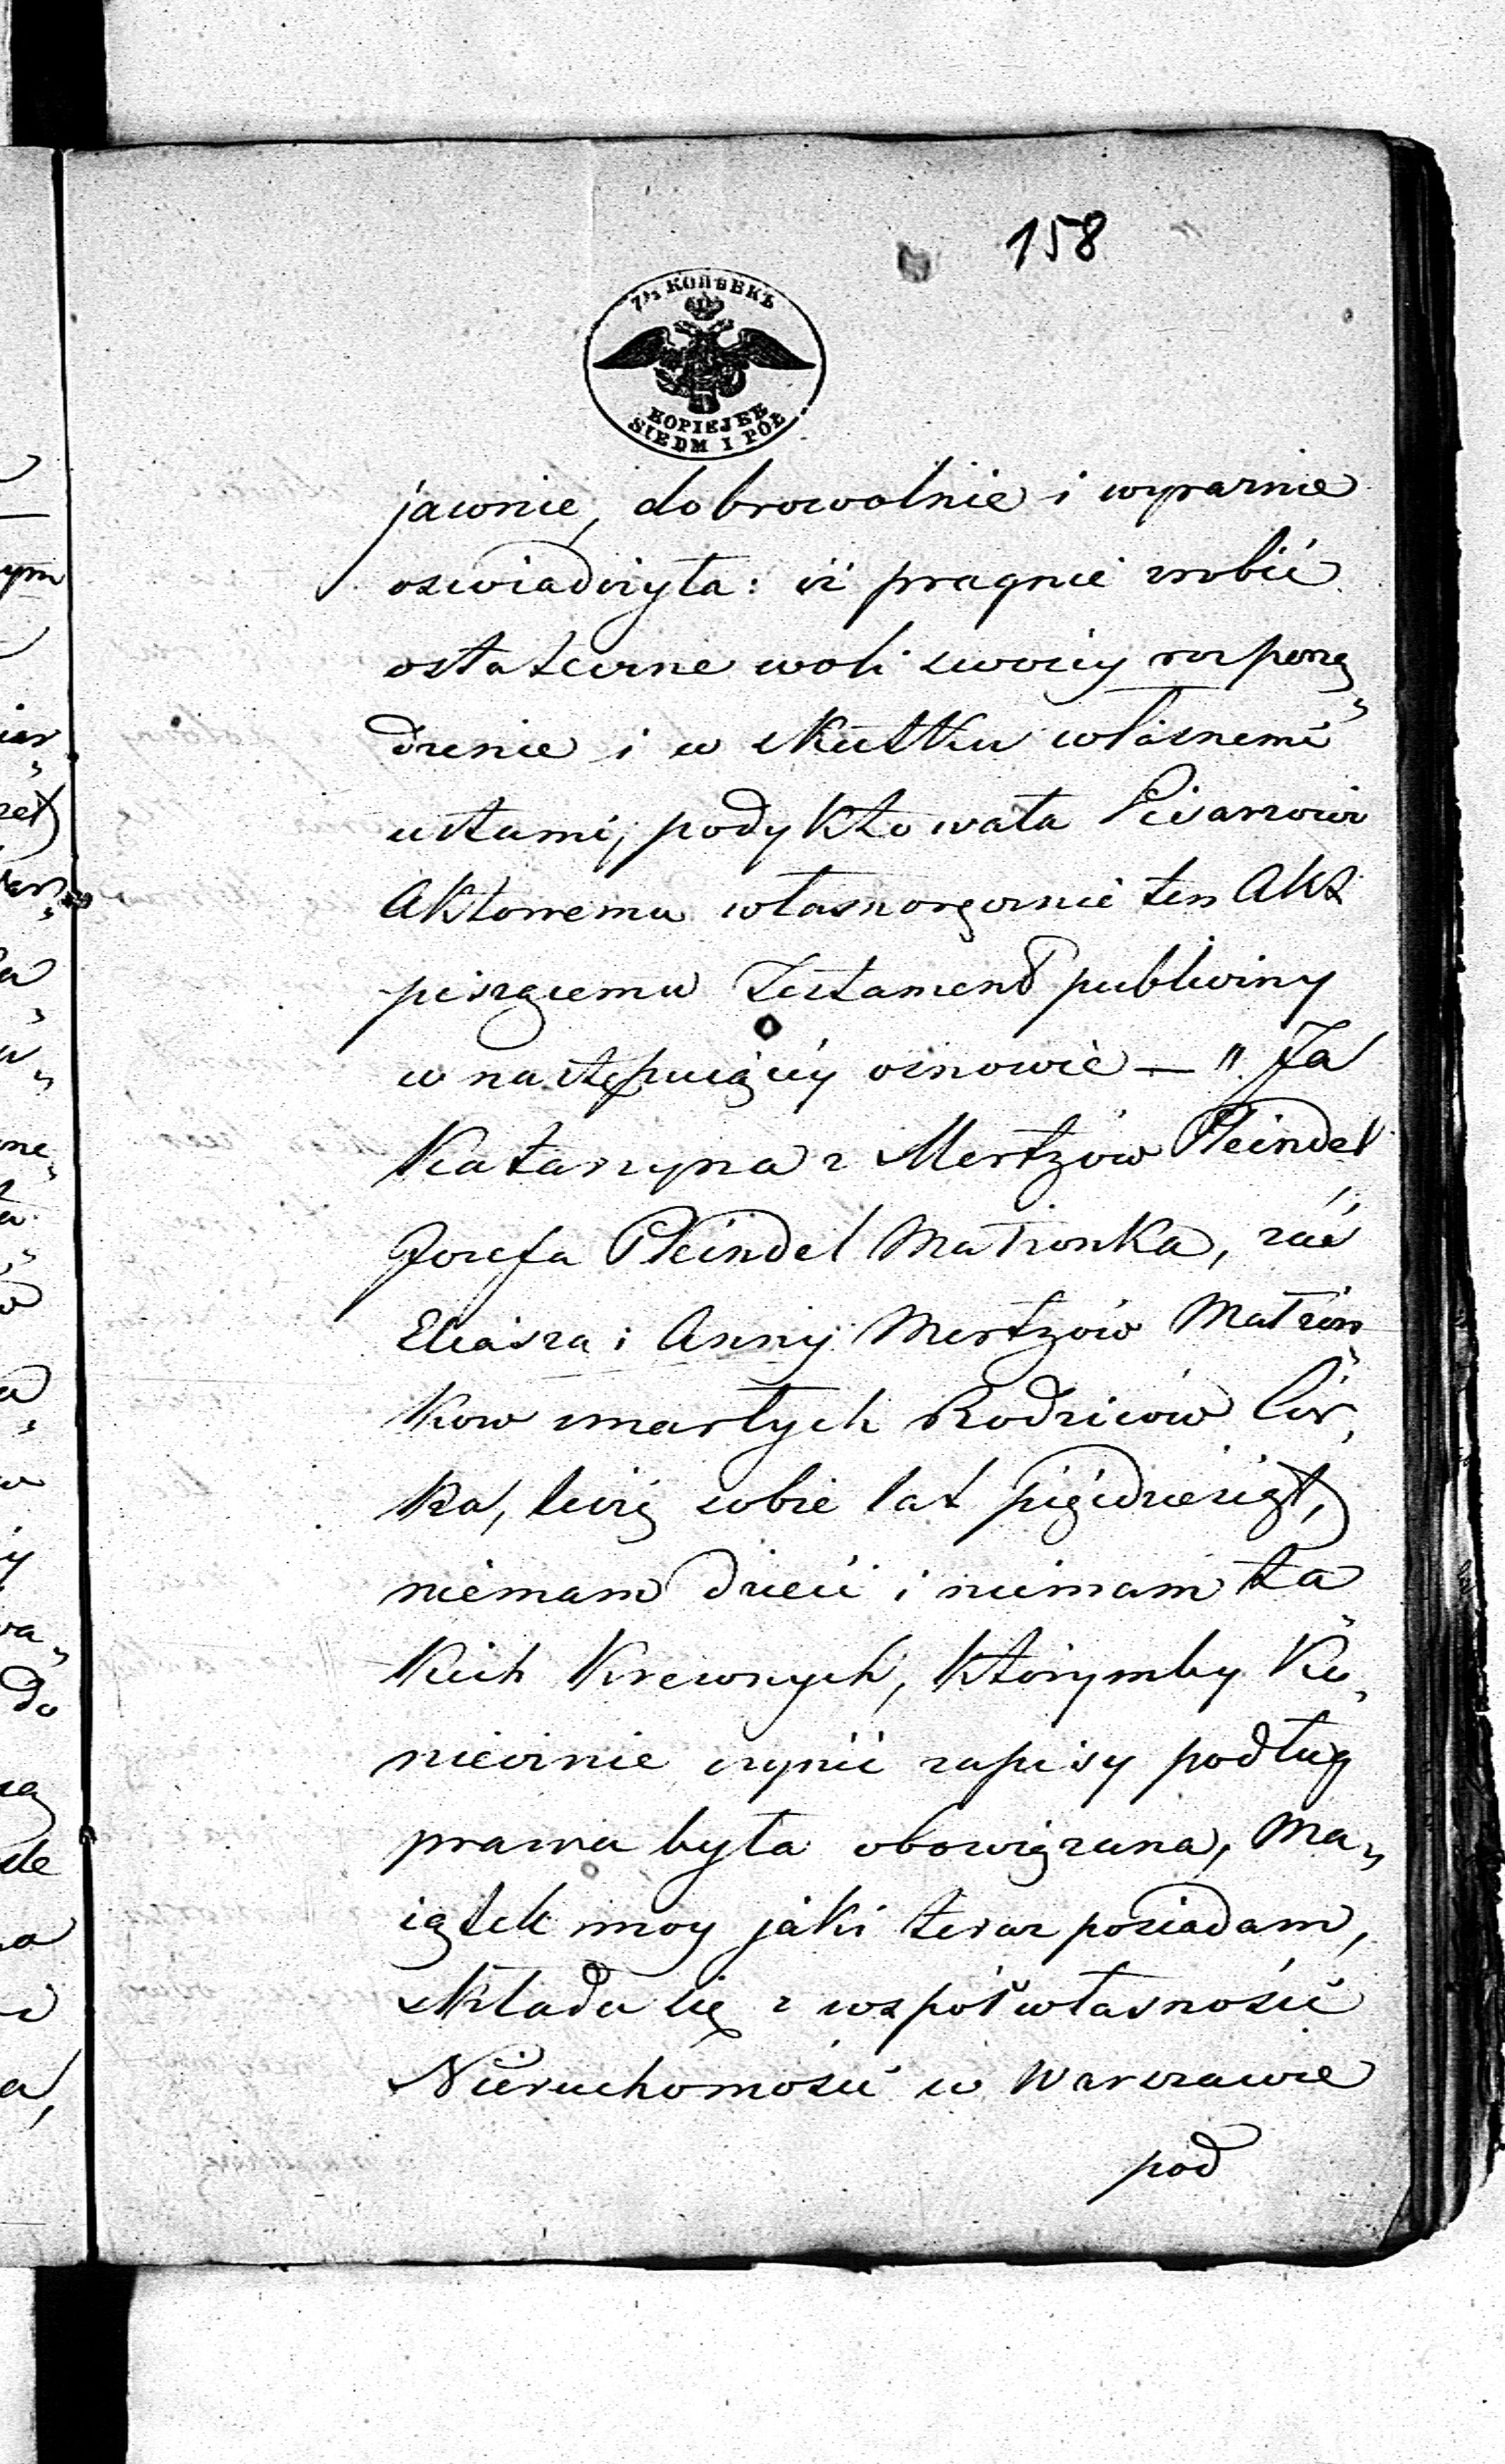 158
7½ КОПѢЕКЪ
KOPIEJEK
SIEDM I PÓŁ
jawnie, dobrowolnie i wyraznie
oswiadczyła: iż pragnie zrobić
ostateczne woli swoiey rozporzą„
dzenie i w skutku własnemi
ustami, podyktowała Pisarzowi
Aktowemu własnoręcznie ten Akt
piszącemu Testament publiczny
w następuiącéy osnowie — „Ja
Katarzyna z Mertzów Pleindel
Jozefa Pleindel Małżonka, zaś
Eliasza i Anny Mertzów Małżon„
kow zmarłych Rodziców Cór„
ka, liczę sobie lat pięćdziesiąt,
niemam dzieci i niemam ta„
kich Krewnych, którymby Ko„
niecznie czynić zapisy podług
prawa była obowiązana, Ma„
iątek moy jaki teraz posiadam,
składa się z wspołwłasności
Nieruchomości w Warszawie
pod